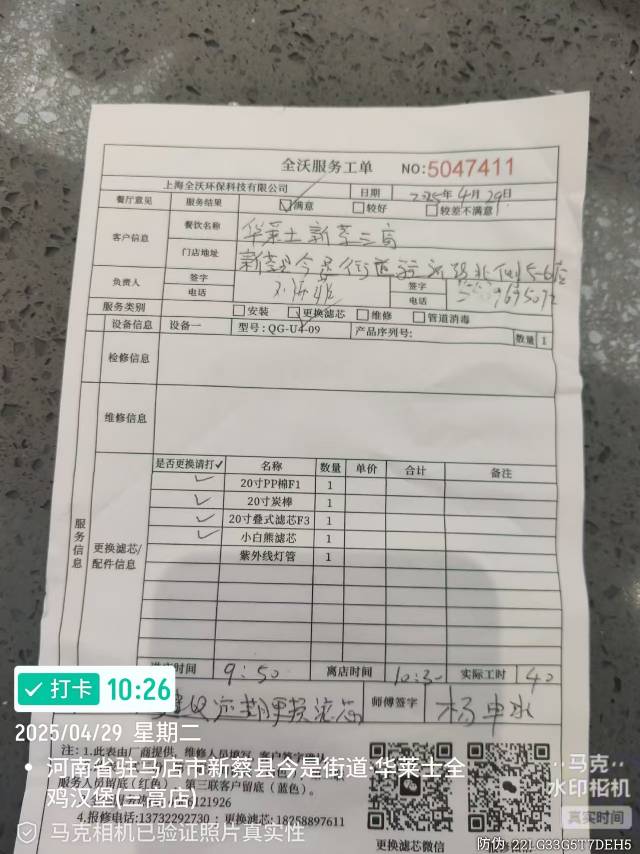 全沃服务工单 NO:5047411
上海全沃环保科技有限公司 日期 2025年4月29日
餐厅意见 服务结果 满意 较好 较差不满意
客户信息 餐饮名称 华莱士新蔡三高
门店地址 新蔡县今是街道
负责人 签字 签字
电话 电话
服务类别 安装 更换滤芯 维修 管道消毒
设备信息 设备一 型号:QG-U4-09 产品序列号: 数量 1
检修信息
维修信息
服务信息
更换滤芯/配件信息
是否更换请打✓ 名称 数量 单价 合计 备注
✓ 20寸PP棉F1 1
✓ 20寸炭棒 1
✓ 20寸叠式滤芯F3 1
✓ 小白熊滤芯 1
紫外线灯管 1
时间 9:50 离店时间 10:30 实际工时 40
建议定期更换滤芯 师傅签字 杨申水
打卡 10:26
2025/04/29 星期二
注: 1.此表由厂商提供, 维修人员填写, 客户签字确认
河南省驻马店市新蔡县今是街道·华莱士全鸡汉堡(三高店)
服务人员留底(红色) 第三联客户留底(蓝色)。
121926
4.报修电话:13732292730 ; 更换滤芯:18258897611
更换滤芯微信
马克相机已验证照片真实性
马克
水印相机
真实时间
防伪 22LG33G5T7DEH5